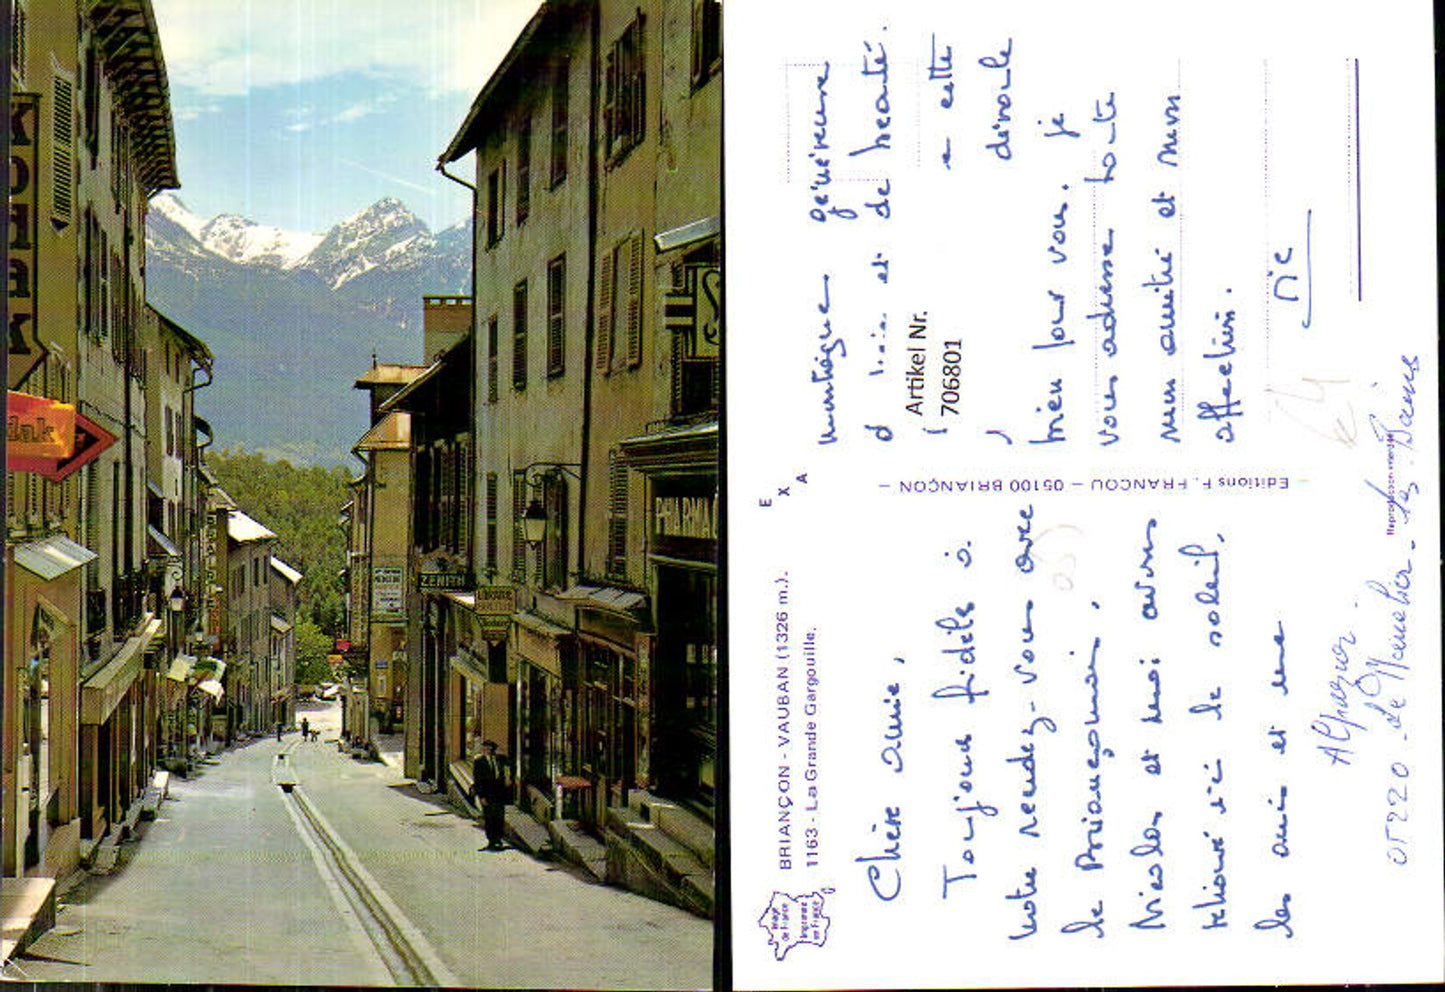 Kodak
dak
ZENITH
LIBRAIRIE
PHARMA
S
BRIANÇON - VAUBAN (1326 m.).
1163 - La Grande Gargouille.
E
X
A
Image
de France
Imprimé
en France
Editions F. FRANCOU - 05100 BRIANÇON -
Reproduction interdite
Artikel Nr.
706801
Chère amie,
Toujours fidèle à
notre rendez-vous avec
le Briançonnais,
Nicolas et moi avons
retrouvé ici le soleil,
les amis et une
montagne généreuse
et de beauté.
cette
mieu pour vous. je
vous adresse toute
mon amitié et mon
affection.
05220 - Le Monetier - les - Bains